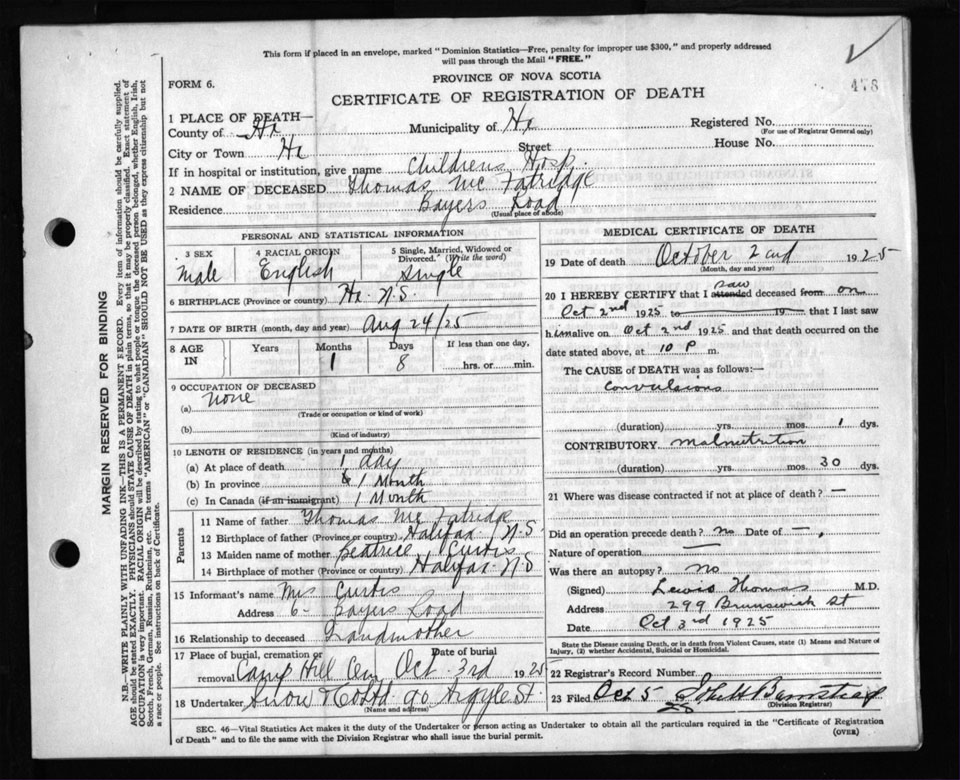 This form if placed in an envelope, marked "Dominion Statistics—Free, penalty for improper use $300," and properly addressed
will pass through the Mail "FREE."
PROVINCE OF NOVA SCOTIA
FORM 6.
478
CERTIFICATE OF REGISTRATION OF DEATH
1 PLACE OF DEATH—
County of Hx Municipality of Hx Registered No.
(For use of Registrar General only)
City or Town Hx Street House No.
If in hospital or institution, give name Childrens Hosp.
2 NAME OF DECEASED Thomas Mc Fatridge
Residence Bayers Road
(Usual place of abode)
PERSONAL AND STATISTICAL INFORMATION
3 SEX Male
4 RACIAL ORIGIN English
5 Single, Married, Widowed or Divorced. (Write the word) Single
6 BIRTHPLACE (Province or country) Hx. N.S.
7 DATE OF BIRTH (month, day and year) Aug 24/25
8 AGE IN Years Months 1 Days 8 If less than one day, hrs. or min.
9 OCCUPATION OF DECEASED
(a) None
(Trade or occupation or kind of work)
(b)
(Kind of industry)
10 LENGTH OF RESIDENCE (in years and months)
(a) At place of death 1 day
(b) In province 1 Month
(c) In Canada (if an immigrant) 1 Month
Parents
11 Name of father Thomas Mc Fatridge
12 Birthplace of father (Province or country) Halifax N.S.
13 Maiden name of mother Beatrice Curtis
14 Birthplace of mother (Province or country) Halifax N.S
15 Informant's name Mrs Curtis
Address 6 Bayers Road
16 Relationship to deceased Grandmother
17 Place of burial, cremation or removal Camp Hill Cem Date of burial Oct. 3rd 1925
18 Undertaker Snow & Co Ltd. 90 Argyle St.
(Name and address)
MEDICAL CERTIFICATE OF DEATH
19 Date of death October 2nd 1925
(Month, day and year)
20 I HEREBY CERTIFY that I attended saw deceased from on
Oct 2nd 1925 to 19 that I last saw
him alive on Oct 2nd 1925 and that death occurred on the
date stated above, at 10 P m.
The CAUSE of DEATH was as follows:—
Convulsions
(duration) yrs. mos. 1 dys.
CONTRIBUTORY Malnutrition
(duration) yrs. mos. 30 dys.
21 Where was disease contracted if not at place of death? —
Did an operation precede death? no Date of —
Nature of operation —
Was there an autopsy? no
(Signed) Lewis Thomas M.D.
Address 299 Brunswick St
Date Oct 3rd 1925
State the Disease causing Death, or in death from Violent Causes, state (1) Means and Nature of
Injury, (2) whether Accidental, Suicidal or Homicidal.
22 Registrar's Record Number
23 Filed Oct 5
(Division Registrar)
SEC. 46—Vital Statistics Act makes it the duty of the Undertaker or person acting as Undertaker to obtain all the particulars required in the "Certificate of Registration
of Death" and to file the same with the Division Registrar who shall issue the burial permit.
(OVER)
MARGIN RESERVED FOR BINDING
N.B.—WRITE PLAINLY WITH UNFADING INK—THIS IS A PERMANENT RECORD. Every item of information should be carefully supplied.
AGE should be stated EXACTLY. PHYSICIANS should STATE CAUSE OF DEATH in plain terms, so that it may be properly classified. Exact statement of
OCCUPATION is very important. RACIAL ORIGIN will be described by stating to what people or tongue the deceased person belonged, whether English, Irish,
Scotch, French, German, Russian, Ruthenian, etc. The terms "AMERICAN" or "CANADIAN" SHOULD NOT BE USED as they express citizenship but not
a race or people. See instructions on back of Certificate.